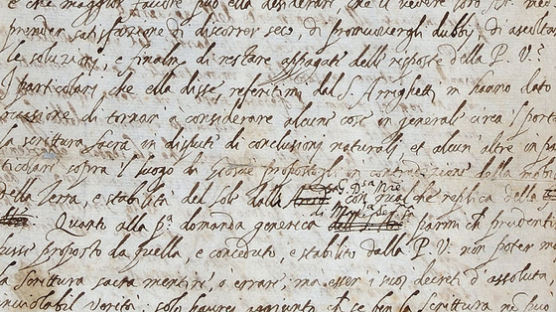 e che maggior favore può ella desiderare che il vedere loro
prender satisfazione di discorrer seco, di promuovergli dubby, di ascolta
le soluzioni, e finalm.e di restare appagati delle risposte della P. V.?
I particolari, che ella disse, referitimi dal S. Arrighetti m hanno dato
occasione di tornar a considerare alcune cose in generale circa l port
la scrittura sacra in dispute di conclusioni naturali et alcun'altre in pa
ticolare sopra l luogo di Giosuè propostogli in contradizione della mobi
della Terra, e stabilità del sole dalla con qualche replica della
di
Quanto alla p.a domanda generica parmi ch prudenti
fusse proposto da quella, e conceduto, e stabilito dalla P. V. non poter m
la scrittura sacra mentire, o errare, ma esser i suoi decreti d'assoluta
inviolabil verità. solo haurei aggiunto, ch se ben la scrittura